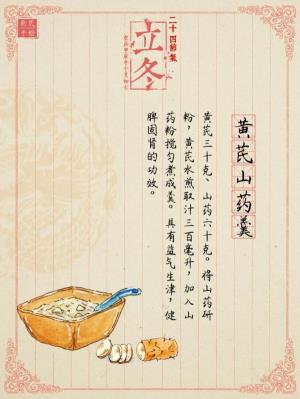 二十四節氣
立冬
黄芪山药羹
黄芪三十克、山药六十克。将山药研
粉，黄芪水煎取汁三百毫升，加入山
药粉搅匀煮成羹。具有益气生津，健
脾固肾的功效。